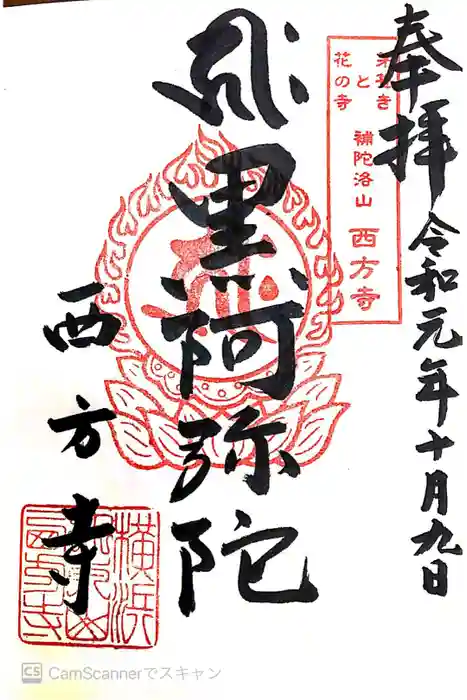 奉拝
令和元年十月九日
花の寺
と
補陀洛山 西方寺
黒阿弥陀
西方寺
横浜
CS CamScannerでスキャン